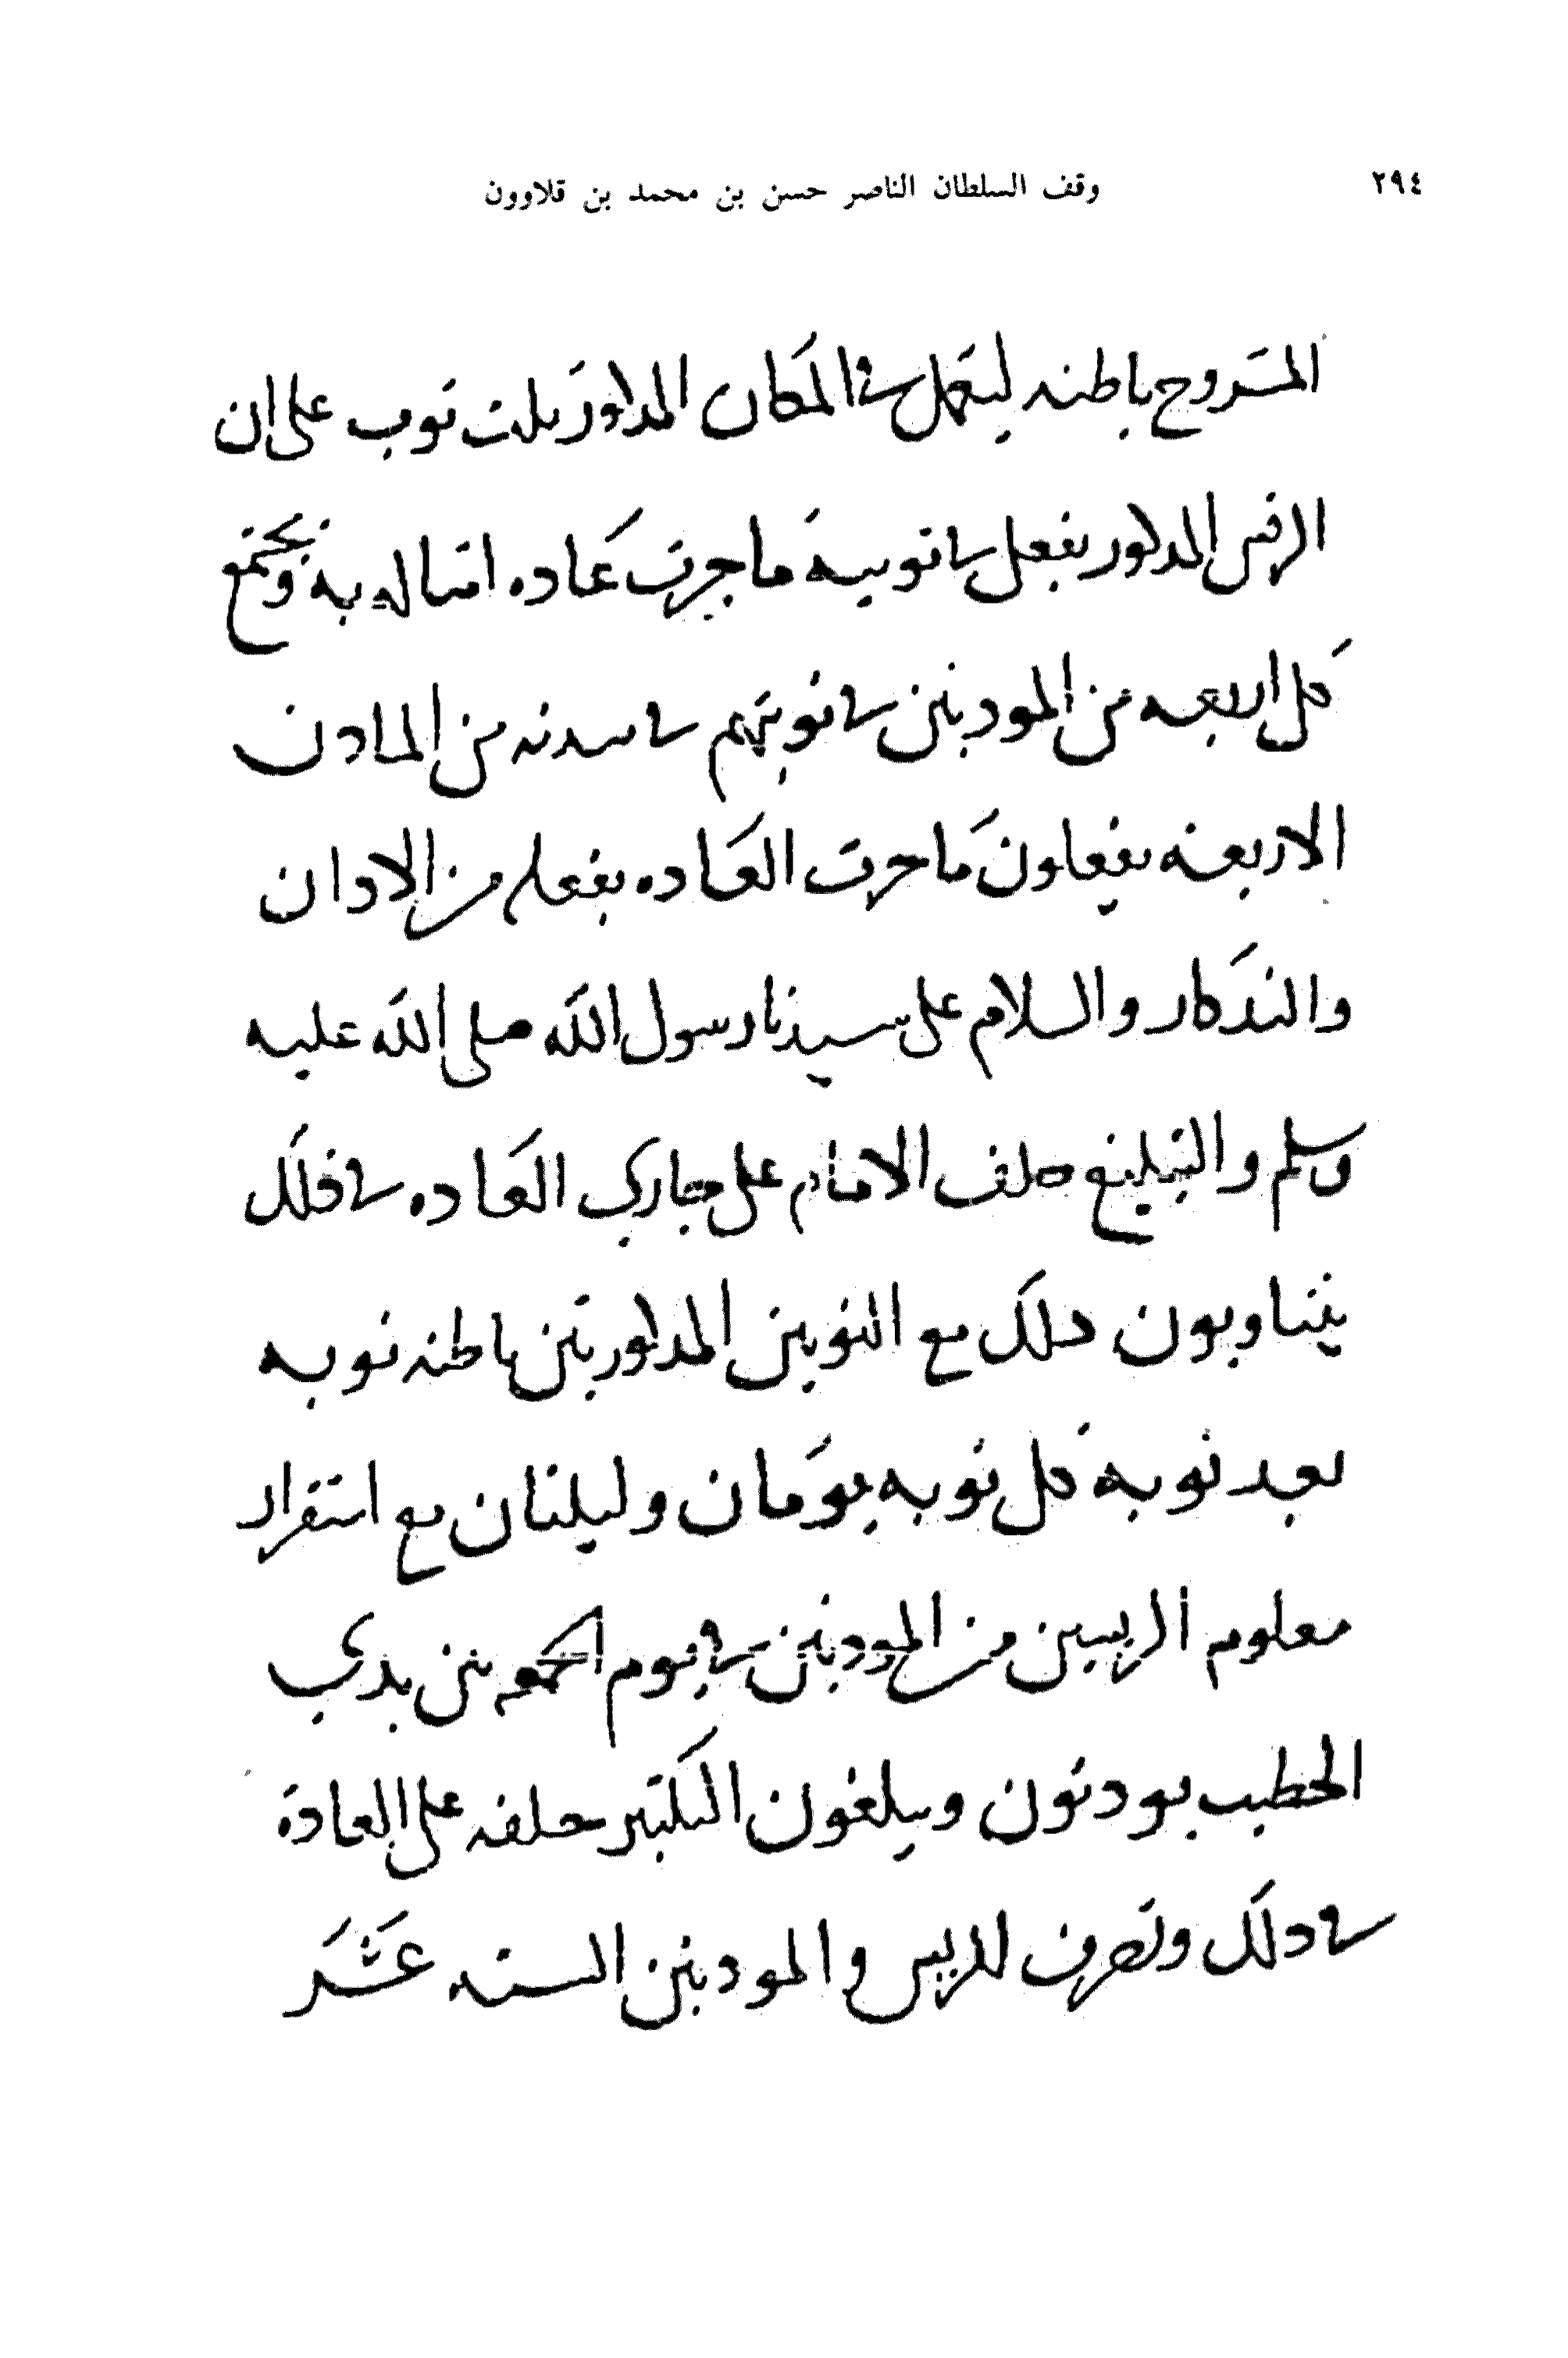 ٢٩٤ وقف السلطان الناصر حسن بن محمد بن قلاوون
المشروح باطنه ليعمل في المكان المذكور ثلث نوب على ان
الريس المذكور يفعل في نوبته ما جرت عادة امثاله به ويجتمع
كل اربعه من الموذنين في نوبتهم في مدنه من المادن
الاربعه يفعلون ما جرت العاده بفعله من الاذان
والتذكار والسلام على سيدنا رسول الله صلى الله عليه
وسلم والتبليغ خلف الامام على جاري العاده في ذلك
يتناوبون ذلك مع النوبتين المذكورتين باطنه نوبه
بعد نوبه كل نوبه يومان وليلتان مع استقرار
معلوم الريسين من الموذنين في يوم الجمعه بين يدي
الخطيب يوذنون ويبلغون التكبير خلفه على العادة
في ذلك وتصرف للريس والموذنين الستة عشر